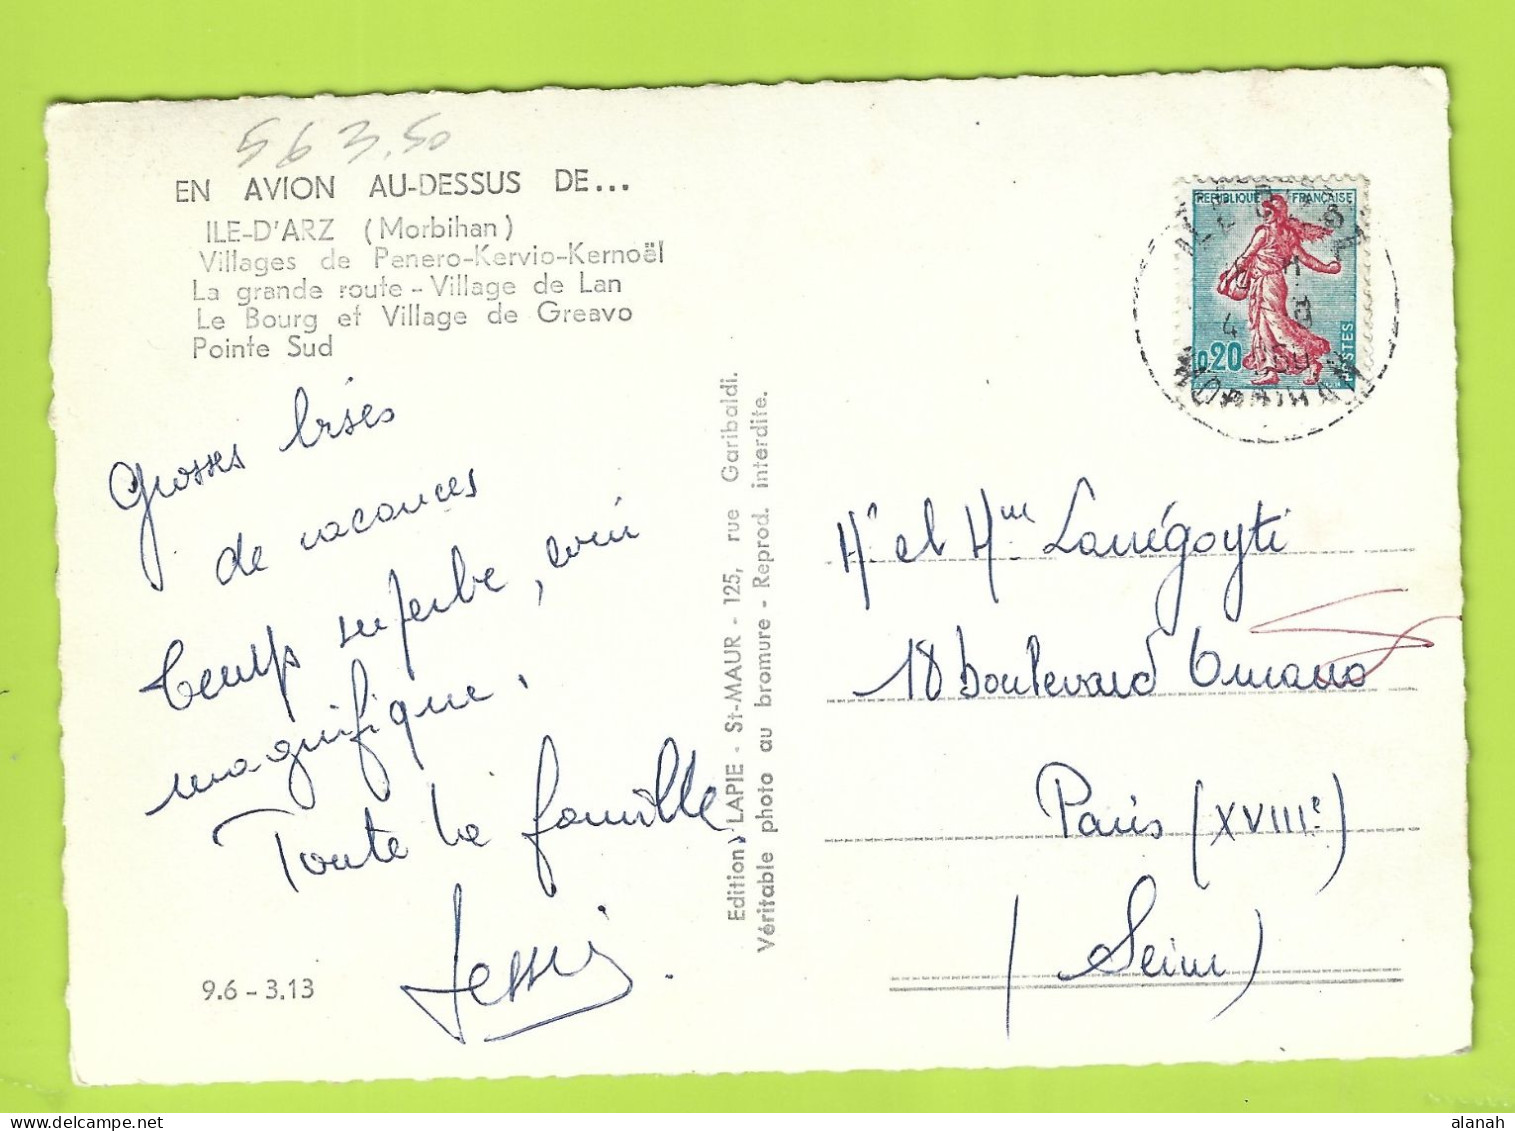 563.50
EN AVION AU-DESSUS DE...
ILE-D'ARZ (Morbihan)
Villages de Penero-Kervio-Kernoël
La grande route - Village de Lan
Le Bourg et Village de Greavo
Pointe Sud
Grosses bises
de vacances
Temps superbe, coin
magnifique.
Toute la famille
9.6 - 3.13
Edition LAPIE - St-MAUR - 125, rue Garibaldi.
Véritable photo au bromure - Reprod. interdite.
REPUBLIQUE FRANÇAISE
0,20
POSTES
MORBIHAN
Mr et Mme Larrégoyti
18 boulevard Ornano
Paris (XVIIIe)
(Seine)
alanah